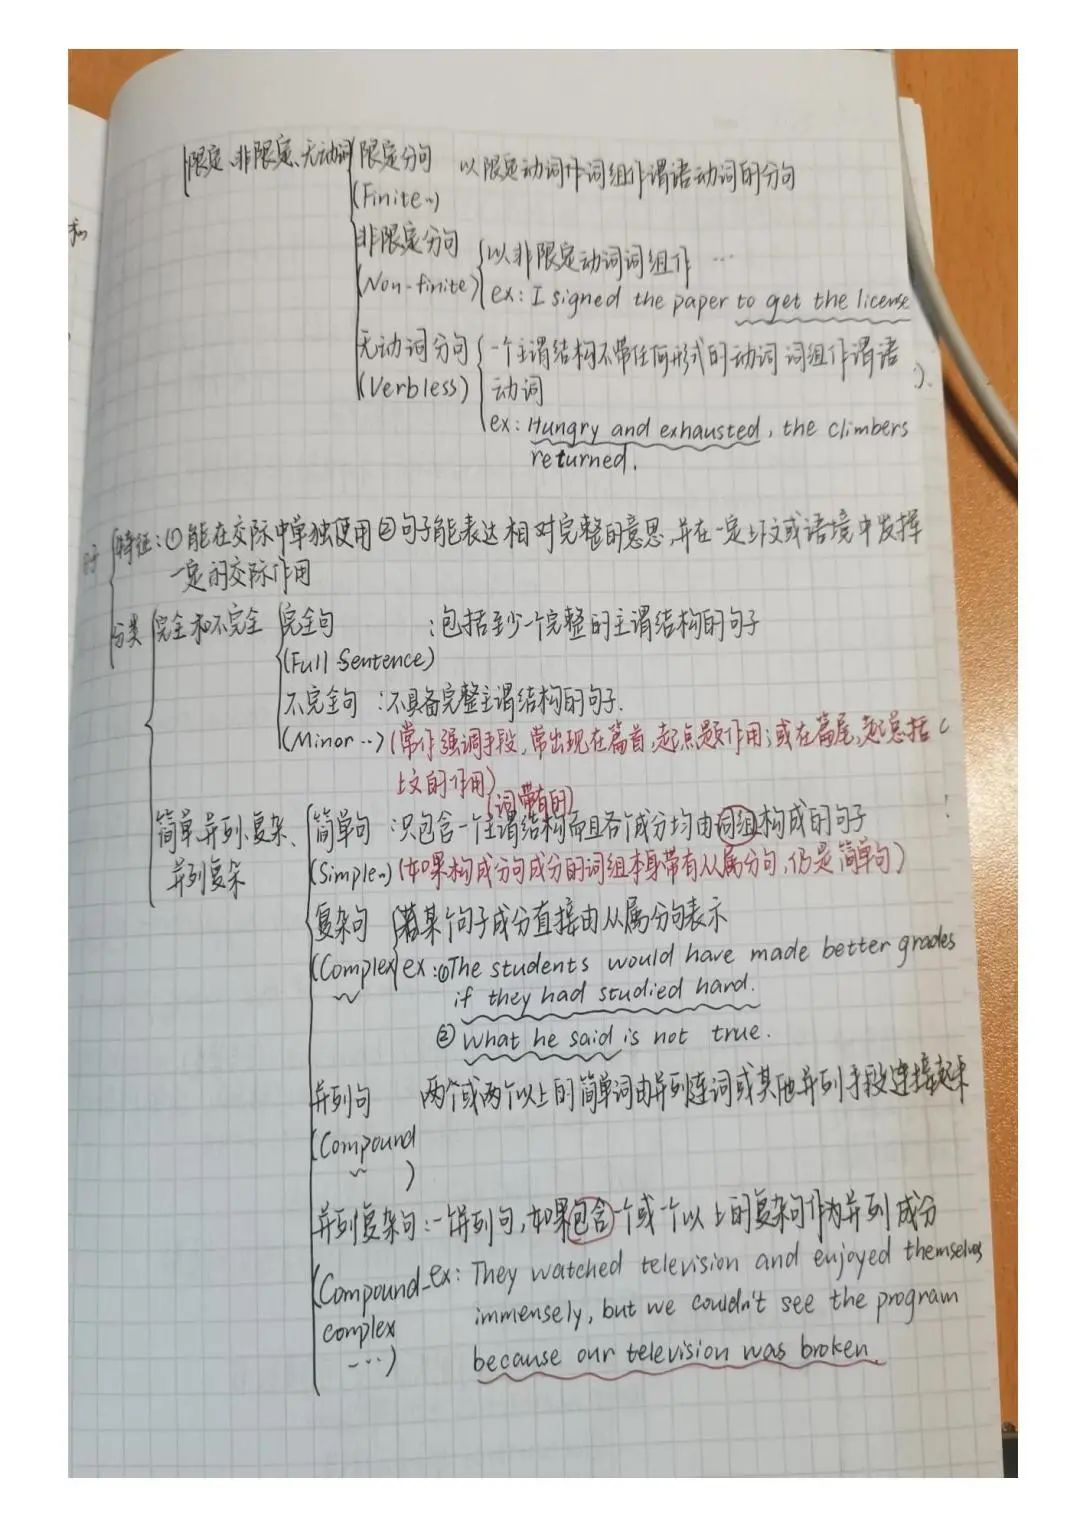 限定、非限定、无动词 限定分句 以限定动词作词组作谓语动词的分句
(Finite~)
非限定分句 以非限定动词词组作 …
(Non-finite) ex: I signed the paper to get the license
无动词分句 一个主谓结构不带任何形式的动词词组作谓语
(Verbless) 动词
ex: Hungry and exhausted, the climbers
returned.
和
句子 特征:①能在交际中单独使用②句子能表达相对完整的意思,并在一定上下文或语境中发挥
一定的交际作用
分类 完全和不完全 完全句 :包括至少一个完整的主谓结构的句子
(Full Sentence)
不完全句 :不具备完整主谓结构的句子.
(Minor ··) (常作强调手段,常出现在篇首,起点题作用;或在篇尾,起总括
上文的作用)
(词带有的)
简单、并列、复杂、 简单句 :只包含一个主谓结构而且各个成分均由词组构成的句子
并列复杂 (Simple~) (如果构成分句成分的词组本身带有从属分句,仍是简单句)
复杂句 若某个句子成分直接由从属分句表示
(Complex) ex:①The students would have made better grades
if they had studied hard.
② What he said is not true.
并列句 两个或两个以上的简单词由并列连词或其他并列手段连接起来
(Compound
)
并列复杂句:一个并列句,如果包含一个或一个以上的复杂句作为并列成分
(Compound- ex: They watched television and enjoyed themselves
complex immensely, but we couldn't see the program
···) because our television was broken.